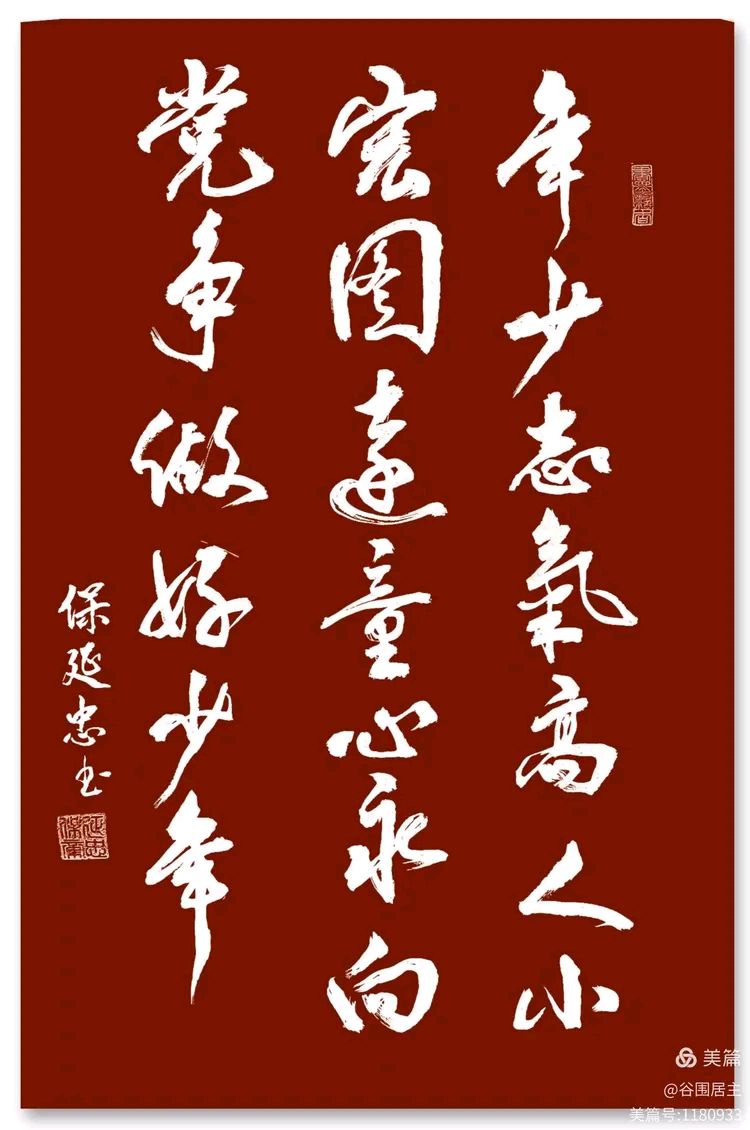 年少志氣高人小
宏图遠童心永向
党争做好少年
保延忠书
美篇
@谷围居主
美篇号:1180933